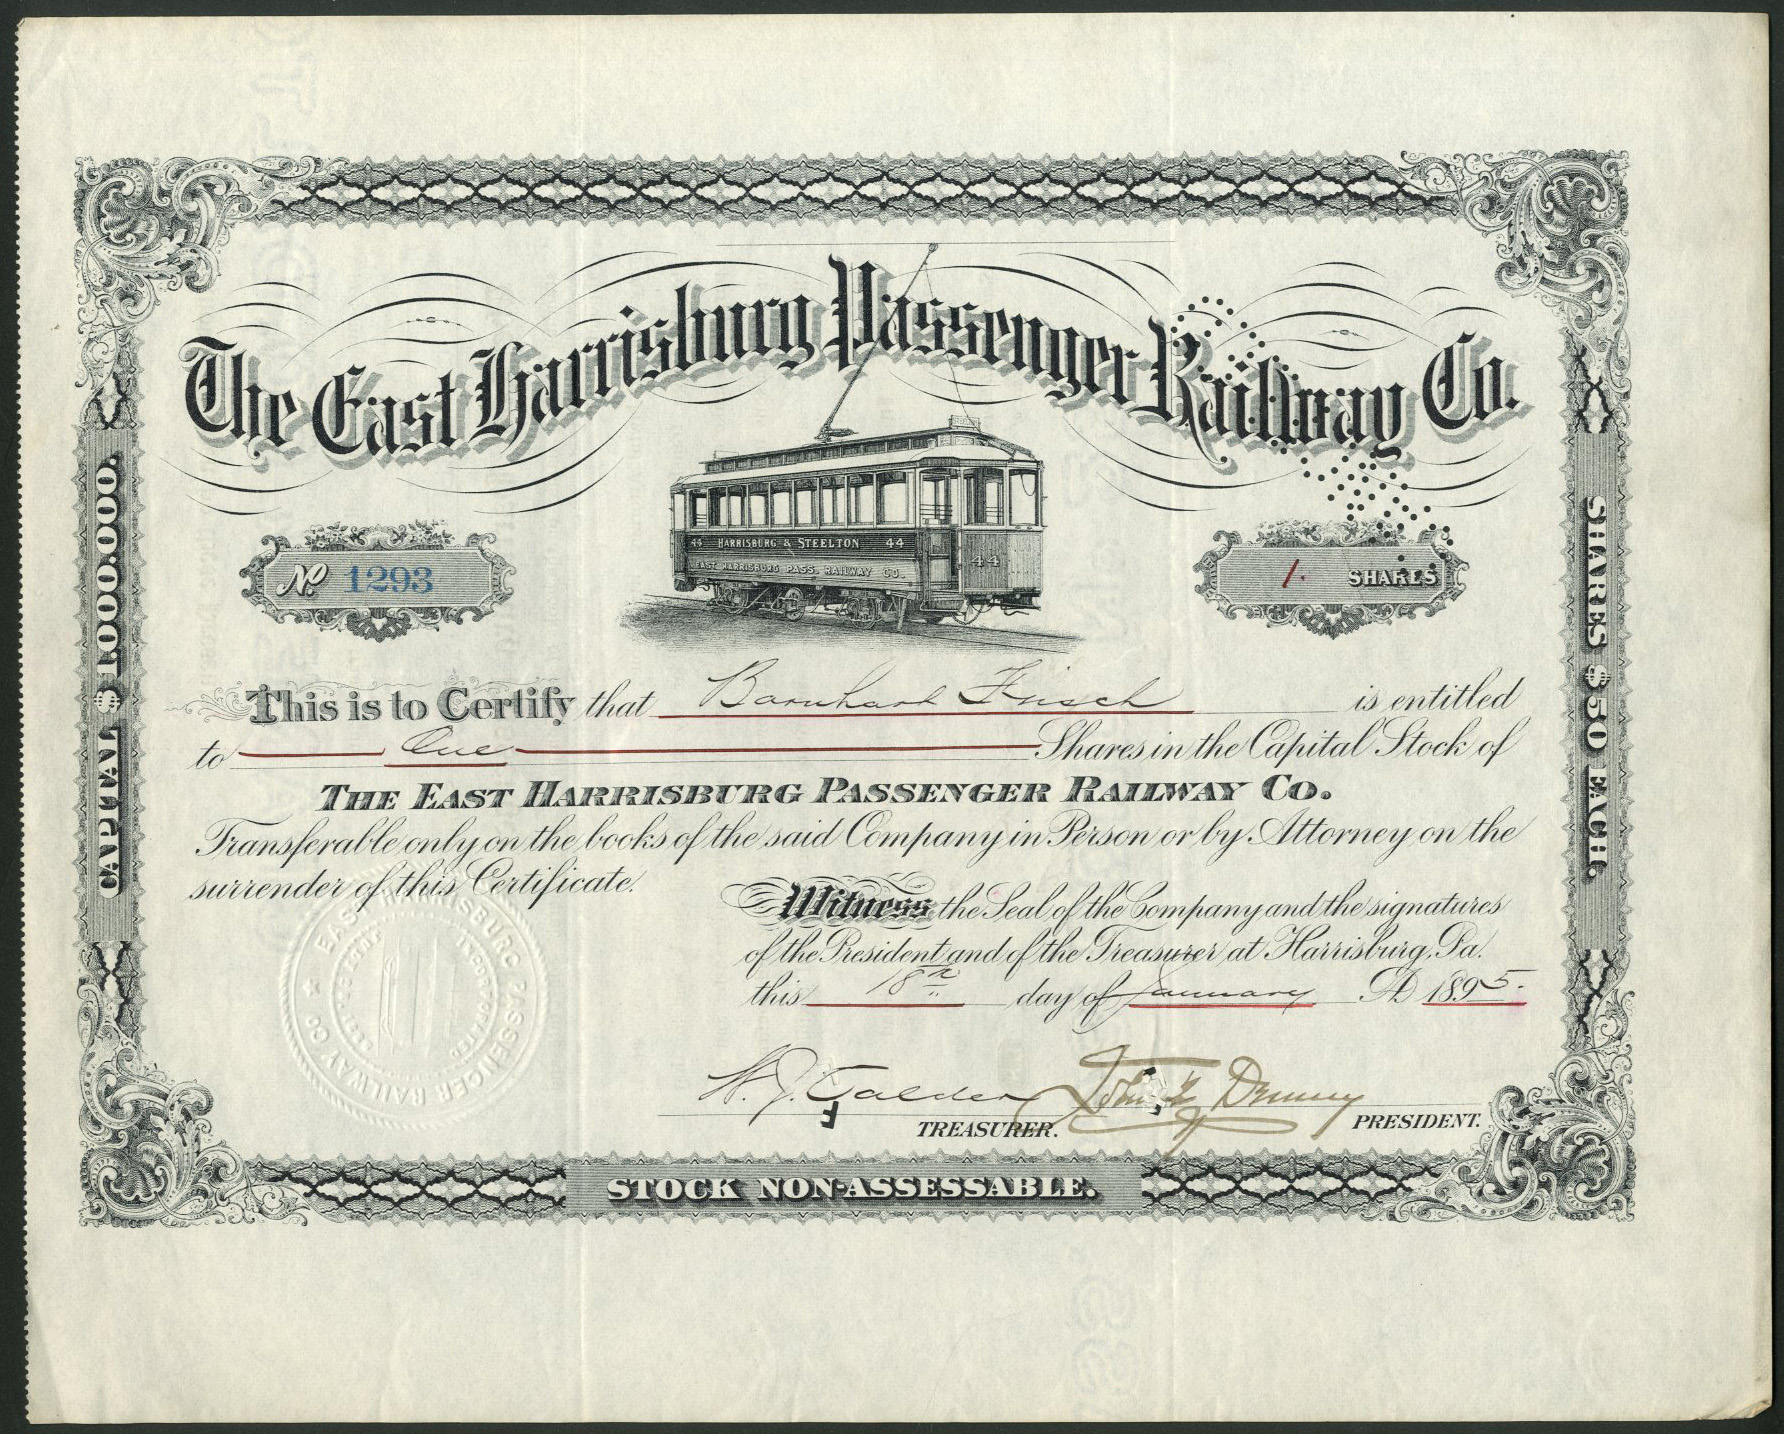 The East Harrisburg Passenger Railway Co.
No. 1293
44 HARRISBURG & STEELTON 44
EAST HARRISBURG PASS. RAILWAY CO.
44
1. SHARES
CAPITAL $1,000,000.
SHARES $50 EACH.
This is to Certify that Barnhart Frisch is entitled
to One Shares in the Capital Stock of
THE EAST HARRISBURG PASSENGER RAILWAY CO.
Transferable only on the books of the said Company in Person or by Attorney on the
surrender of this Certificate.
Witness the Seal of the Company and the signatures
of the President and of the Treasurer at Harrisburg, Pa.
this 18th day of January AD 1895.
EAST HARRISBURG PASSENGER RAILWAY CO
INCORPORATED
W. J. Calder
TREASURER.
John Denny
PRESIDENT.
STOCK NON-ASSESSABLE.